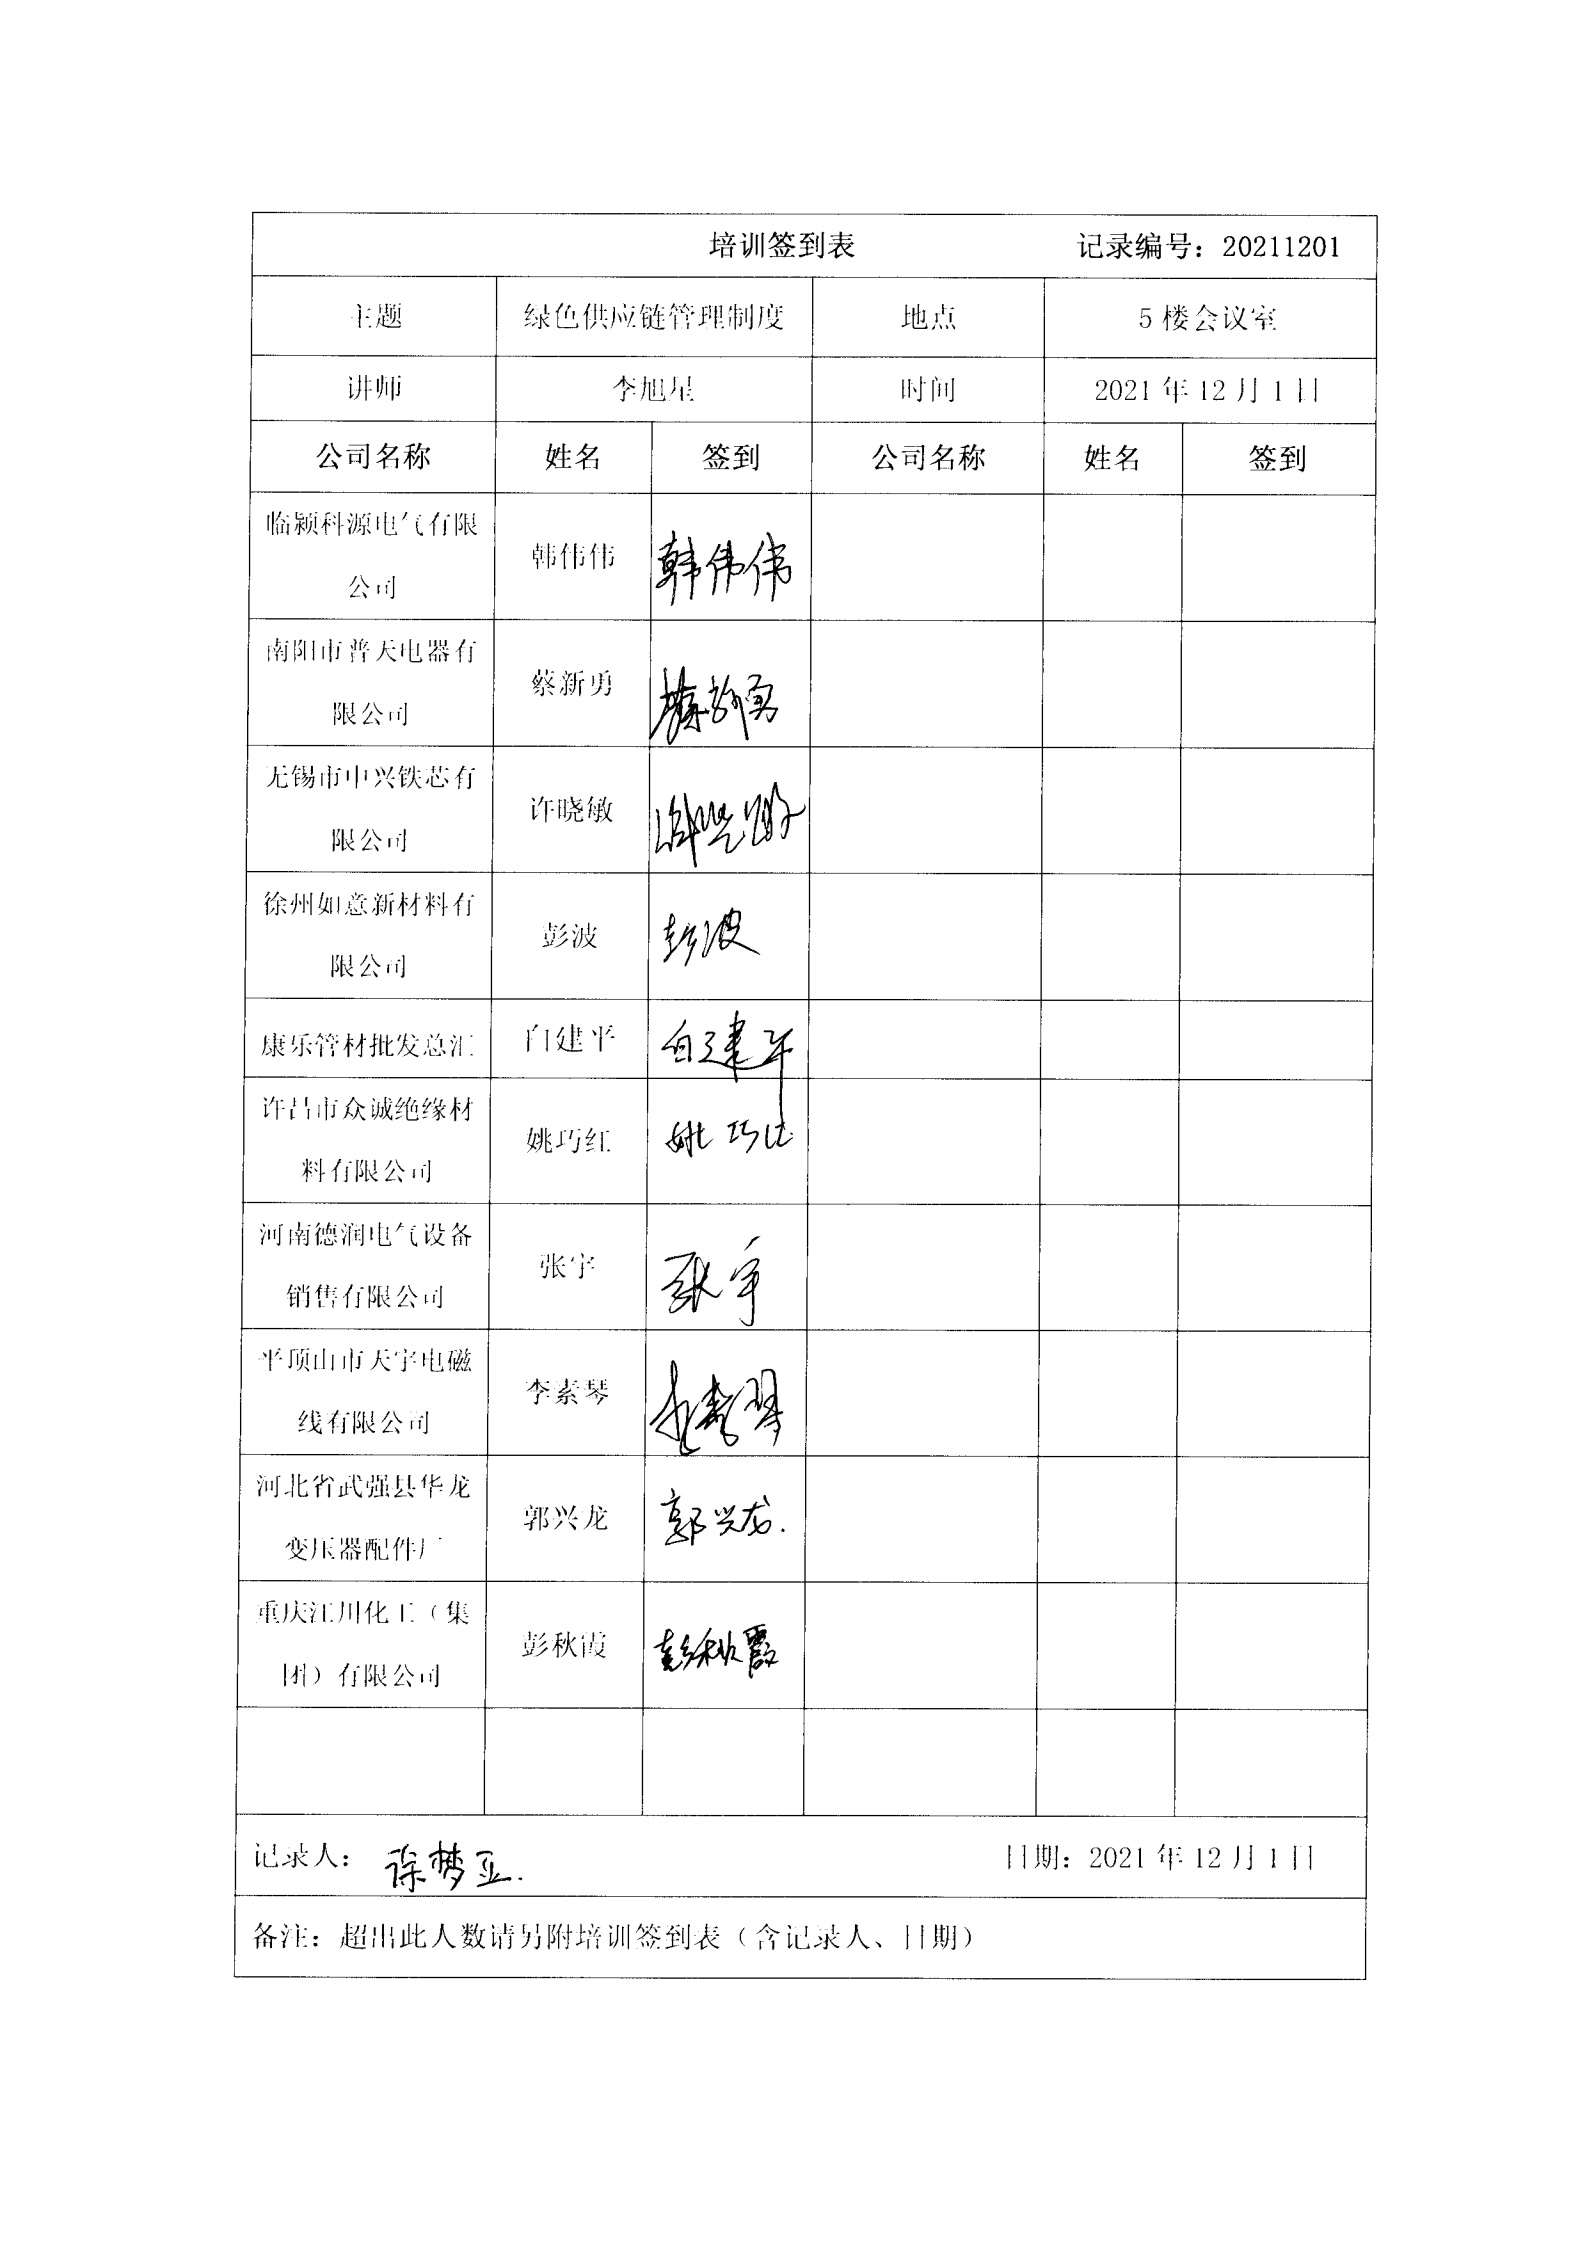 培训签到表 记录编号：20211201
主题 绿色供应链管理制度 地点 5 楼会议室
讲师 李旭星 时间 2021 年 12 月 1 日
公司名称 姓名 签到 公司名称 姓名 签到
临颍科源电气有限
公司
韩伟伟 韩伟伟
南阳市普天电器有
限公司
蔡新勇 蔡新勇
无锡市中兴铁芯有
限公司
许晓敏 许晓敏
徐州如意新材料有
限公司
彭波 彭波
康乐管材批发总汇 白建平 白建平
许昌市众诚绝缘材
料有限公司
姚巧红 姚巧红
河南德润电气设备
销售有限公司
张宇 张宇
平顶山市天宇电磁
线有限公司
李素琴 李素琴
河北省武强县华龙
变压器配件厂
郭兴龙 郭兴龙.
重庆江川化工（集
团）有限公司
彭秋霞 彭秋霞
记录人： 徐梦亚. 日期：2021 年 12 月 1 日
备注：超出此人数请另附培训签到表（含记录人、日期）